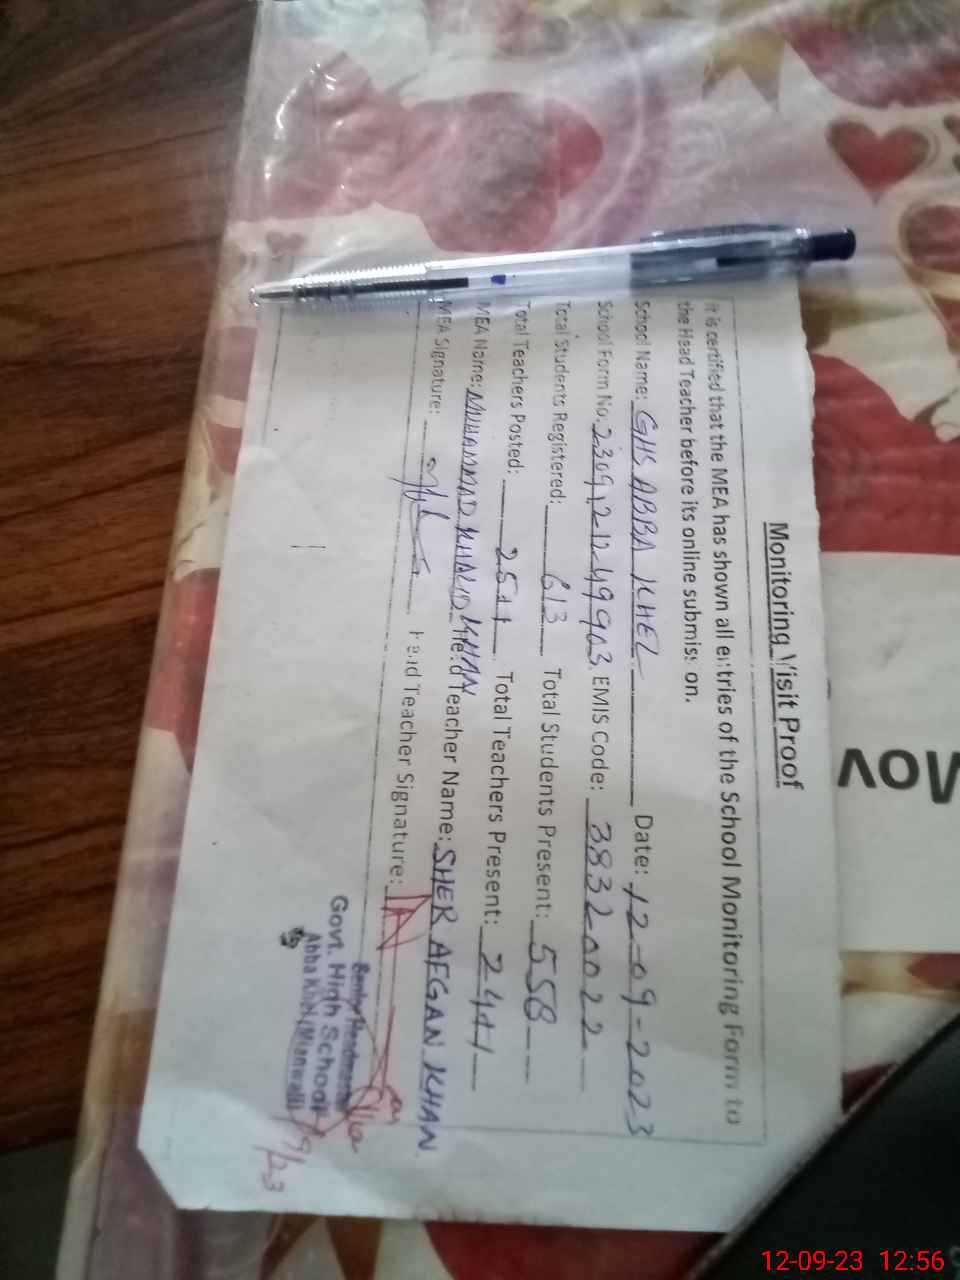 Monitoring Visit Proof
It is certified that the MEA has shown all entries of the School Monitoring Form to
the Head Teacher before its online submission.
School Name: GHS ABBA KHEL Date: 12-09-2023
School Form No. EMIS Code: 38320022
Total Students Registered: 613 Total Students Present: 558
Total Teachers Posted: 25+1 Total Teachers Present: 24+1
MEA Name: MUHAMMAD KHALID KHAN Head Teacher Name: SHER AFGAN KHAN
MEA Signature: Head Teacher Signature:
Senior Headmaster
Govt. High School
Abba Khel (Mianwali)
Nov
12-09-23 12:56